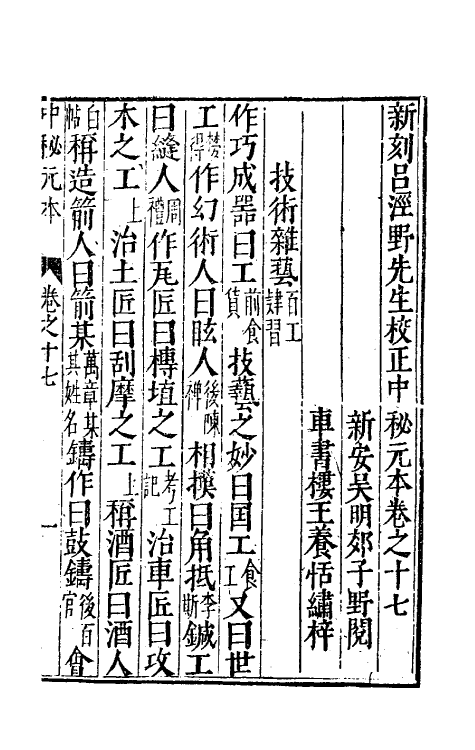 新刻呂涇野先生校正中秘元本卷之十七
新安吳明郊子野閱
車書樓王養恬繡梓
技術雜藝百工肄習
作巧成器曰工前食貨技藝之妙曰国工食工又曰世
工楚得作幻術人曰眩人後陳禅相撲曰角抵李斯鍼工
曰縫人周禮作瓦匠曰槫埴之工考工記治車匠曰攻
木之工上治土匠曰刮摩之工上稱酒匠曰酒人
白帖稱造箭人曰箭某萬章某其姓名鑄作曰鼓鑄後百官會
中秘元本 卷之十七 一